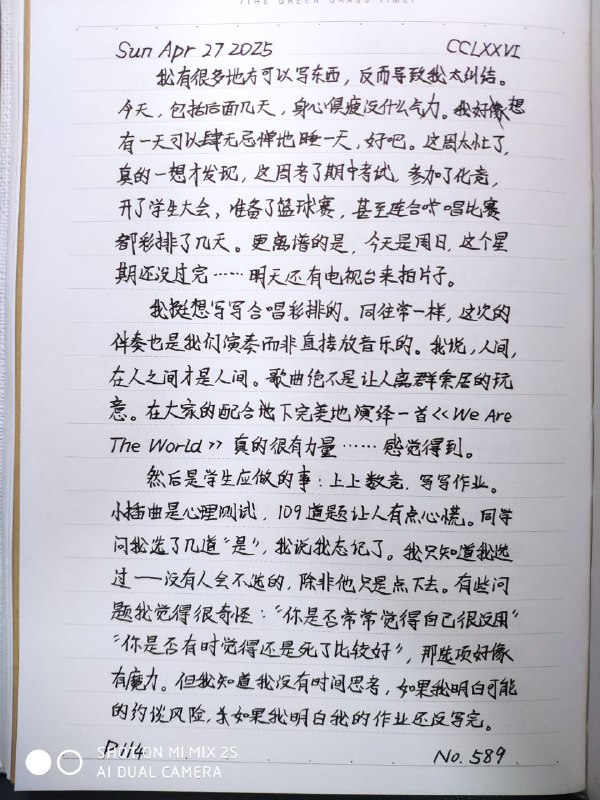 (THE GREEN GRASS TIME)
Sun Apr 27 2025 CCLXXVI
我有很多地方可以写东西，反而导致我太纠结。
今天，包括后面几天，身心俱疲没什么气力。我好像想
有一天可以肆无忌惮地睡一天，好吧。这周太忙了，
真的一想才发现，这周考了期中考试，参加了化竞，
开了学生大会，准备了篮球赛，甚至连合唱比赛
都彩排了几天。更离谱的是，今天是周日，这个星
期还没过完……明天还有电视台来拍片子。
我挺想写写合唱彩排的。同往常一样，这次的
伴奏也是我们演奏而非直接放音乐的。我说，人间，
在人之间才是人间。歌曲绝不是让人离群索居的玩
意。在大家的配合地下完美地演绎一首《We Are
The World》真的很有力量……感觉得到。
然后是学生应做的事：上上数竞，写写作业。
小插曲是心理测试，109道题让人有点心慌。同学
问我选了几道“是”，我说我忘记了。我只知道我选
过——没有人会不选的，除非他只是点下去。有些问
题我觉得很奇怪：“你是否常常觉得自己很没用”
“你是否有时觉得还是死了比较好”，那选项好像
有魔力。但我知道我没有时间思考，如果我明白可能
的约谈风险，如果我明白我的作业还没写完。
P.114 No. 589
SHOT ON MI MIX 2S
AI DUAL CAMERA